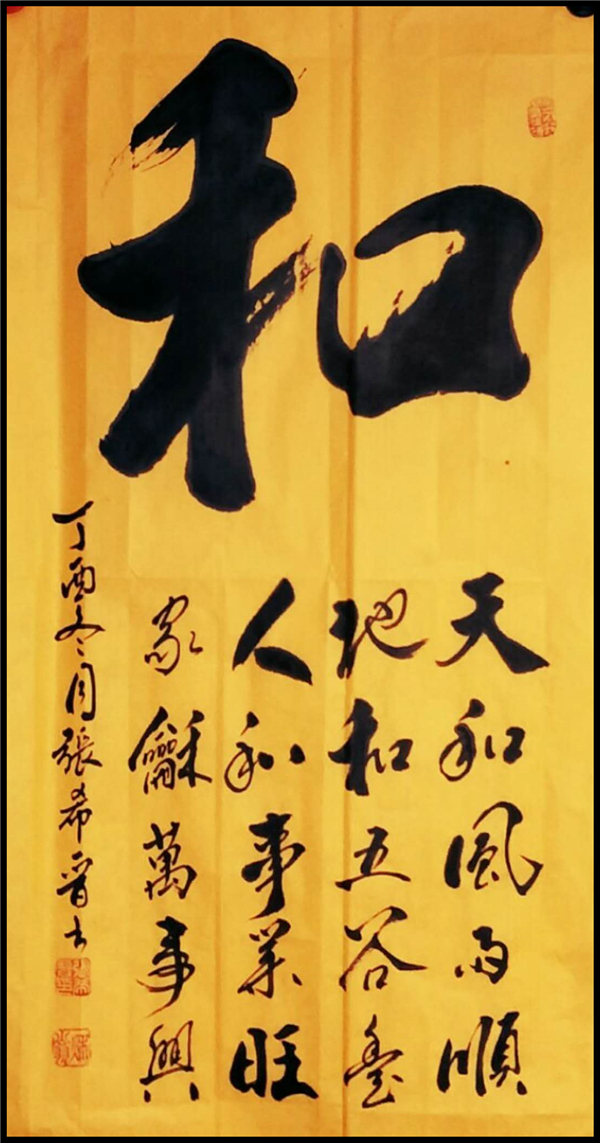 和
天和風雨順
地和五谷豊
人和事業旺
家龢萬事興
丁酉冬月張希晋书